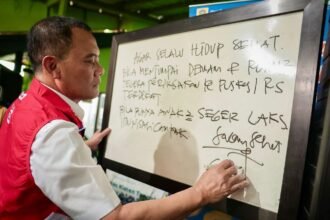 AGAR SELALU HIDUP SEHAT.
BILA MENJUMPAI DEMAM &
SEGERA PERIKSAKAN KE PUSKES / RS
TERDEKAT
BILA ANAK2 SEGER LAKS
IMUNISASI CAMPAK
Salam Sehat